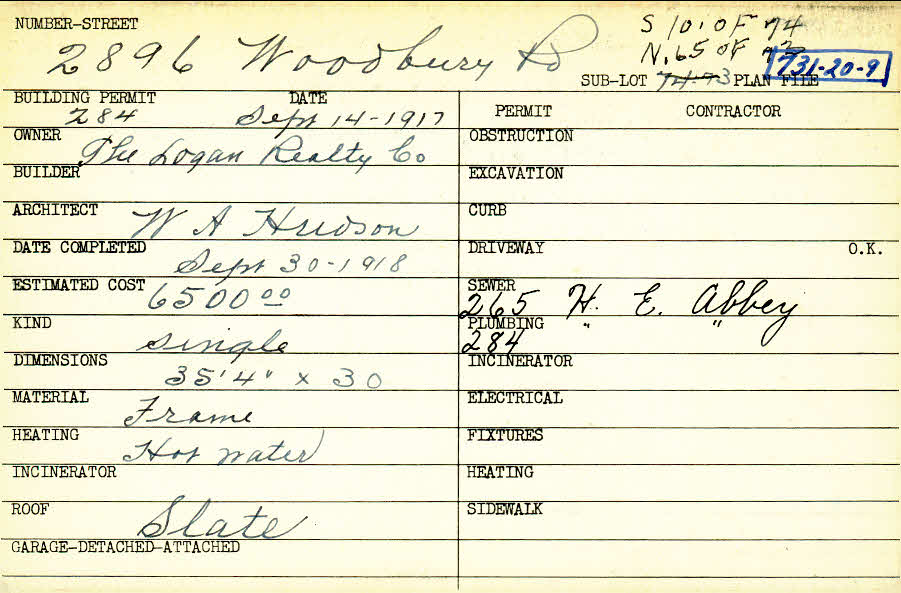 NUMBER-STREET
S 10' OF 74
N. 65 OF 73
2896 Woodbury Rd
731-20-9
SUB-LOT 74-73 PLAN FILE
BUILDING PERMIT DATE
284 Sept 14-1917
PERMIT CONTRACTOR
OWNER The Logan Realty Co
OBSTRUCTION
BUILDER
EXCAVATION
ARCHITECT W A Hudson
CURB
DATE COMPLETED Sept 30-1918
DRIVEWAY O.K.
ESTIMATED COST 6500 00
SEWER
265 H. E. Abbey
KIND single
PLUMBING " "
284
DIMENSIONS 35'4" x 30
INCINERATOR
MATERIAL Frame
ELECTRICAL
HEATING Hot water
FIXTURES
INCINERATOR
HEATING
ROOF Slate
SIDEWALK
GARAGE-DETACHED-ATTACHED